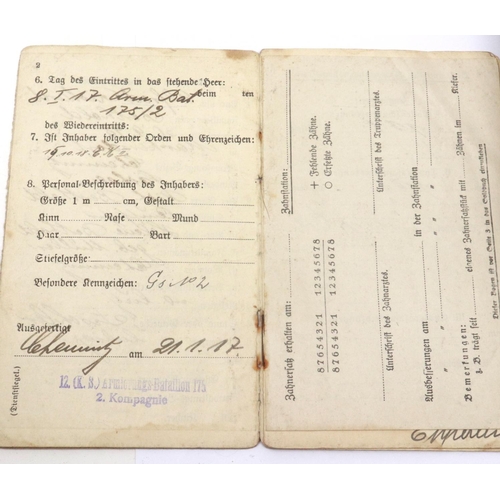 2
6. Tag des Eintrittes in das stehende Heer:
8. I. 17. Arm. Bat. beim ten
175/2
des Wiedereintritts:
7. Ist Inhaber folgender Orden und Ehrenzeichen:
8. Personal-Beschreibung des Inhabers:
Größe 1 m cm, Gestalt
Kinn Nase Mund
Haar Bart
Stiefelgröße
Besondere Kennzeichen: Gs No 2
Ausgefertigt
Chemnitz am 21.1.17
12. (K. B.) Armierungs-Bataillon 175
2. Kompagnie
(Dienstsiegel.)
Zahnstation:
+ Fehlende Zähne.
O Ersetzte Zähne.
Zahnersatz erhalten am:
87654321 12345678
87654321 12345678
Unterschrift des Zahnarztes. Unterschrift des Truppenarztes.
Ausbesserungen am in der Zahnstation
" " " "
" " " "
Bemerkungen:
z. B. trägt selt eigenes Zahnersatzstück mit Zähnen im Kiefer.
Dieser Bogen ist vor Seite 3 in das Soldbuch einzukleben